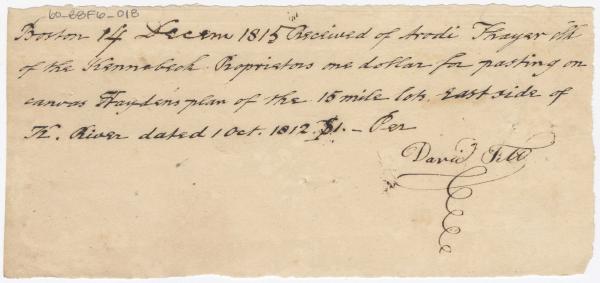 60-88F6-018
Boston 14 Decem 1815 Received of Arodi Thayer
of the Kennebeck Proprietors one dollar for pasting on
canvas Haydens plan of the 15 mile lots East side of
K. River dated 1 Oct. 1812. $1.— Per
David Felt